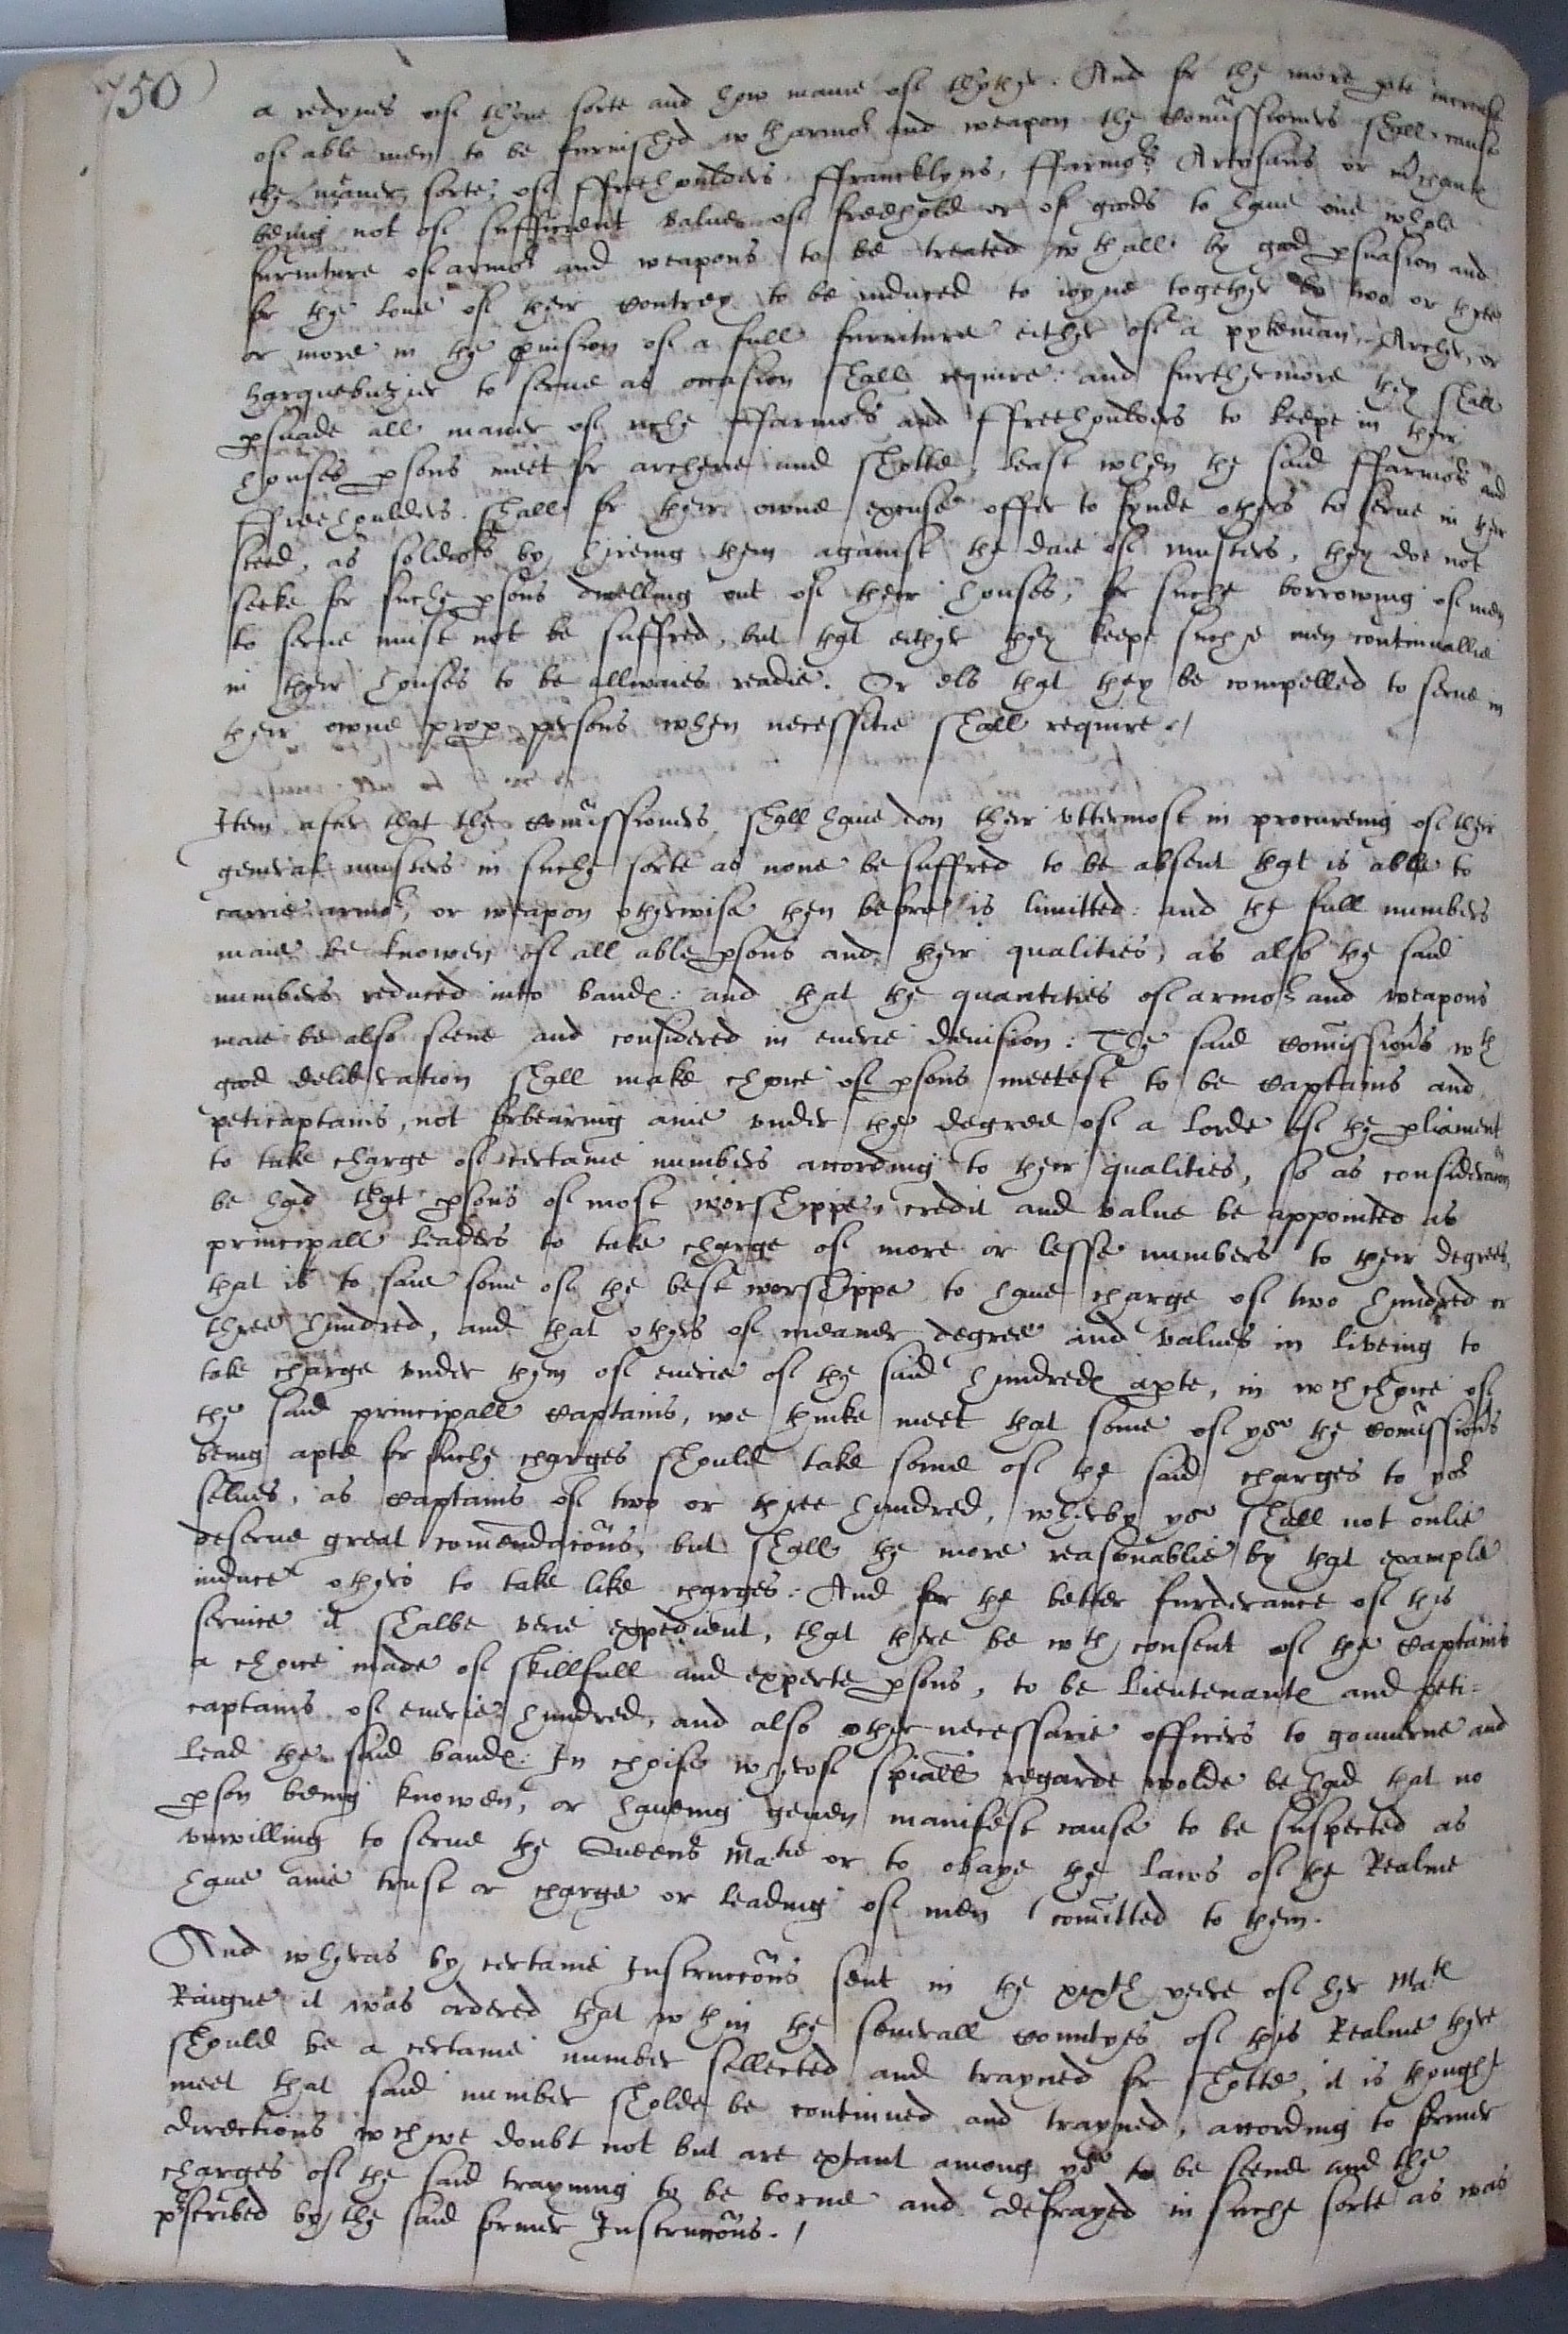 750
a redynes of thone sorte and how manie of thother. And for the more spedie increase
of able men to be furnished wth armor and weapon the Comissioners shall cause
the meaner sorte of ffreehoulders ffrancklyns, ffarmors Artysans or
being not of sufficient value of freehold or of goods to have one whole
furniture of armor and weapons to be treated wthall by good psuasion and
for the love of their Contrey to be induced to ioyne together by two or three
or more in the pvision of a full furniture either of a pykeman, Archer, or
harquebuzier to serve as occasion shall require: and furthermore they shall
psuade all maner of riche ffarmors and ffreehoulders to keepe in their
houses psons meet for archerie and shotte, least when the said ffarmors and
ffreehoulders shall for their owne excuse offer to fynde others to serve in their
steed, as soldiors by hireing them against the daie of musters, they doe not
seeke for suche psons dwelling out of their houses, for suche borrowing of men
to serve must not be suffred, but that either they keepe suche men continuallie
in their houses to be allwaies readie. Or els that they be compelled to serve in
their owne prop persons when necessitie shall require./
Item after that the Comissioners shall have don their uttermost in procureing of their
generall musters in suche sorte as none be suffred to be absent that is able to
carrie armor, or weapon otherwise then before is limitted: and the full numbers
maie be knowen of all able psons and their qualities, as also the said
numbers reduced into bandes: and that the quantities of armor and weapons
maie be also seene and considered in everie devision: The said Comissiors wth
good deliberation shall make choice of psons meetest to be Captains and
peticaptains, not forbearing anie under the degree of a Lorde of the pliament
to take charge of certaine numbers according to their qualities, so as consideracon
be had that psons of most worshippe, credit and value be appointed as
principall leaders to take charge of more or lesse numbers to their degrees,
that is to saie some of the best worshippe to have charge of two hundred or
three hundred, and that others of meaner degree and values in liveing to
take charge under them of everie of the said hundredes apte, in wch choice of
the said principall Captains, we thinke meet that some of you the Comissiors
being apte for suche charges should take some of the said charges to yor
selves, as Captains of two or three hundred, wherby you shall not onlie
deserve great comendacons, but shall the more reasonablie by that example
induce others to take like charges: And for the better furderance of this
service it shalbe verie expedient, that there be wth consent of the Captains
a choice made of skillfull and experte psons, to be Lieutenantes and peti=
captains of everie hundred, and also other necessarie officers to governe and
lead the said bandes: In choise wherof spiall regarde wolde be had that no
pson being knowen, or haveing geven manifest cause to be suspected as
unwilling to serve the Queens Matie or to obaye the laws of the Realme
have anie trust or charge or leading of men comitted to them.
And wheras by certaine Instruccons sent in the xvth yeere of her Maties
Raigne it was ordered that wthin the severall Countyes of this Realme there
should be a certaine number sellected and trayned for shotte, it is thought
meet that said number sholde be continued and trayned, according to former
directions wch we doubt not but are extant among you to be seene and the
charges of the said trayning to be borne and defrayed in suche sorte as was
pscribed by the said former Instruccons./